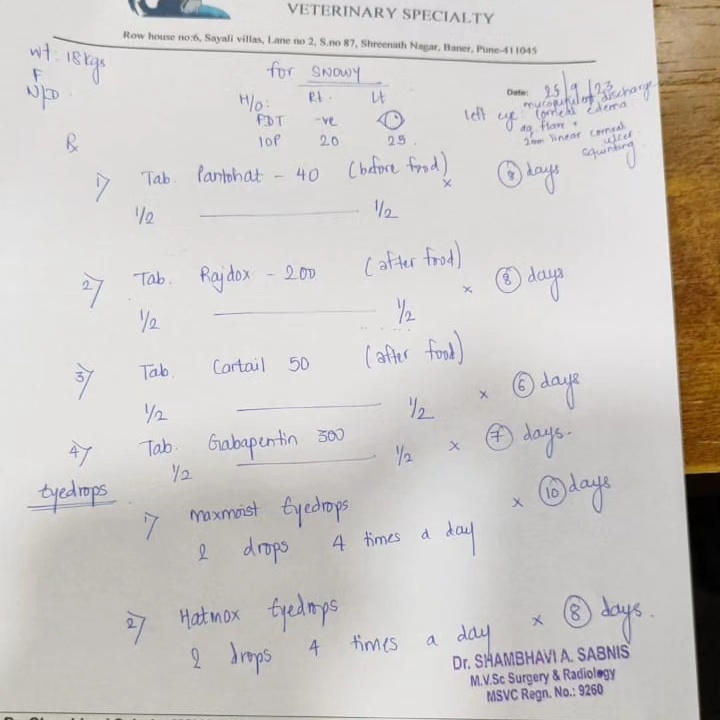 VETERINARY SPECIALTY
Row house no:6, Sayali villas, Lane no 2, S.no 87, Shreenath Nagar, Baner, Pune-411045
wt: 18kgs
F
for SNOWY
Date: 25/9/23
H/O: Rt. Lt
FDT -ve
IOP 20 25
left eye: mucopurulent discharge
corneal edema
aq flare +
2mm linear corneal
ulcer
squinting
Rx
1) Tab. Pantohat - 40 (before food) x 8 days
1/2 ———— 1/2
2) Tab. Rajdox - 200 (after food) x 8 days
1/2 ———— 1/2
3) Tab. Cartail 50 (after food) x 6 days
1/2 ———— 1/2
4) Tab. Gabapentin 300 x 7 days.
1/2 ———— 1/2
Eyedrops
1) maxmoist Eyedrops x 10 days
2 drops 4 times a day
2) Hatmox Eyedrops x 8 days.
2 drops 4 times a day
Dr. SHAMBHAVI A. SABNIS
M.V.Sc Surgery & Radiology
MSVC Regn. No.: 9260